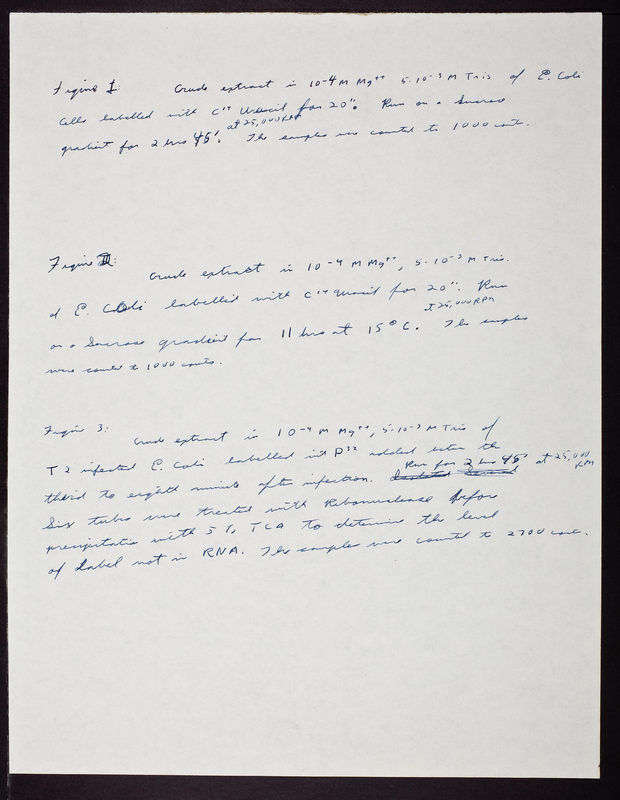 Figure I: Crude extract in 10⁻⁴ M Mg⁺⁺ 5·10⁻³ M Tris of E. Coli
Cells labelled with C¹⁴ Uracil for 20". Run on a Sucrose
at 25,000 RPM
gradient for 2 hrs 45'. The samples were counted to 1000 counts.
Figure II: Crude extract in 10⁻⁴ M Mg⁺⁺, 5·10⁻³ M Tris.
of E. Coli labelled with C¹⁴ Uracil for 20". Run
at 25,000 RPM
on a Sucrose gradient for 11 hrs at 15° C. The samples
were counted to 1000 counts.
Figure 3: Crude extract in 10⁻⁴ M Mg⁺⁺, 5·10⁻³ M Tris of
T2 infected E. Coli labelled with P³² added between the
third to eighth minute after infection. Run for 2 hrs 45' at 25,000 RPM
Six tubes were treated with Ribonuclease before
precipitation with 5% TCA to determine the level
of label not in RNA. The samples were counted to 2700 counts.